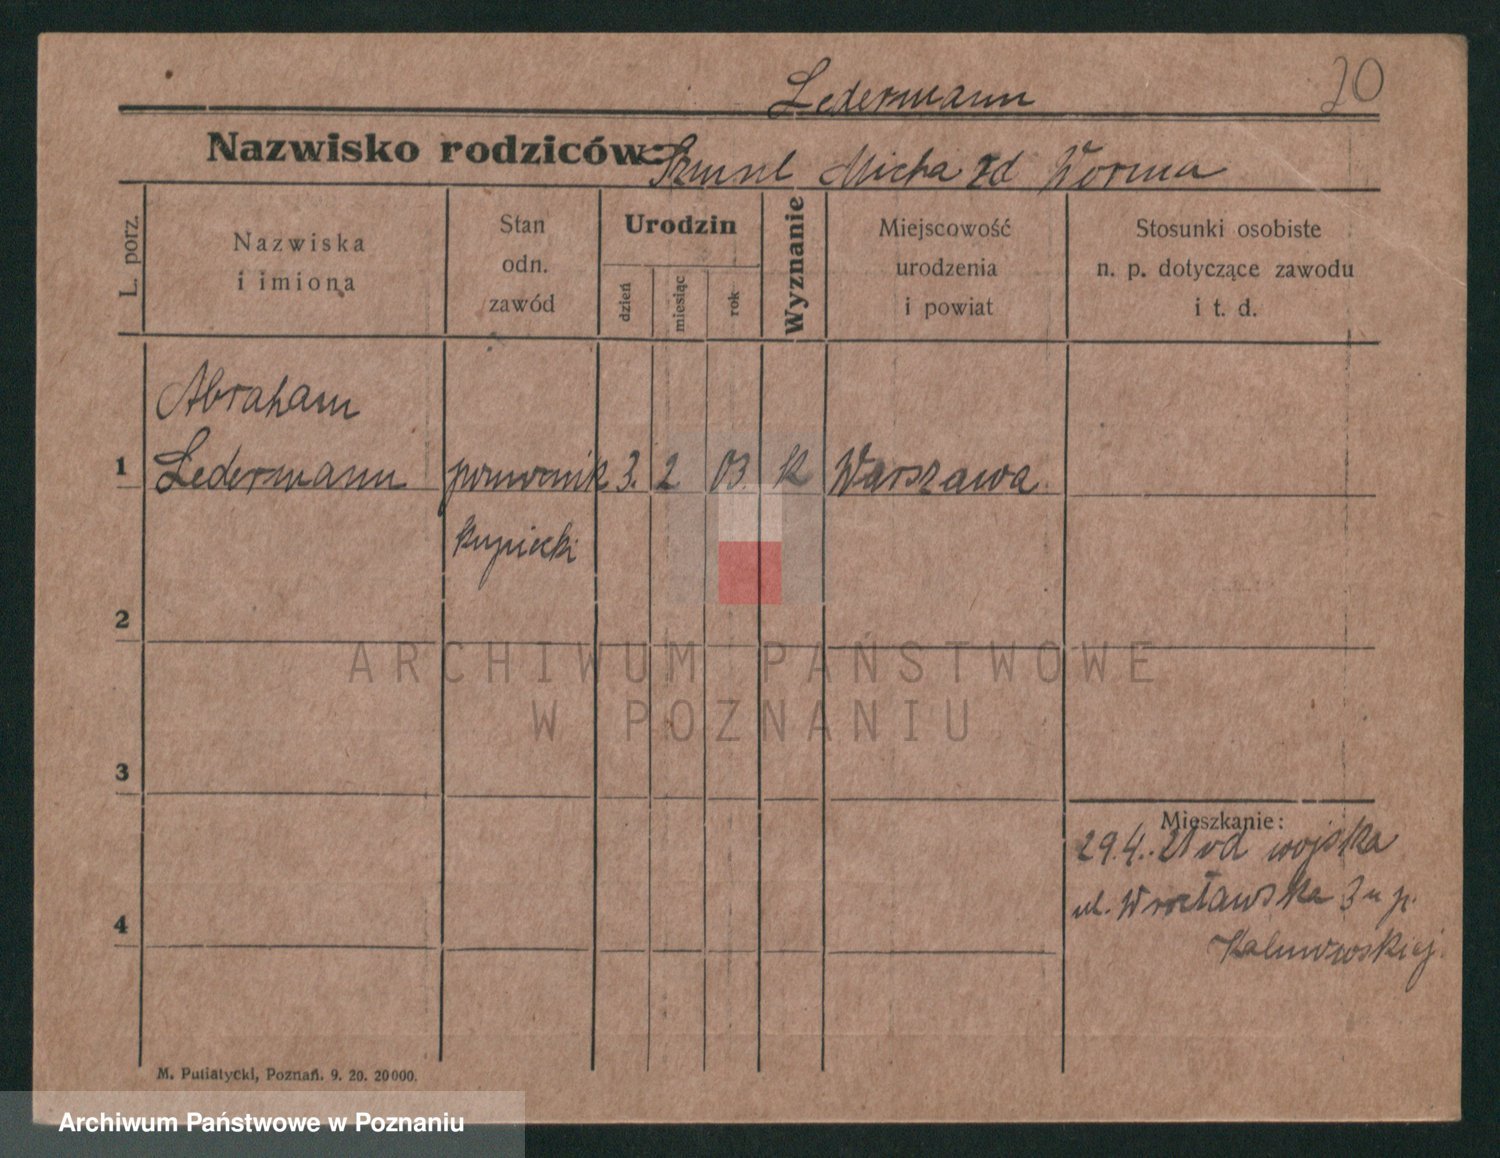 Ledermann
20
Nazwisko rodziców:
Szmul Micha zd Worma
L. porz.
Nazwiska
i imiona
Stan
odn.
zawód
Urodzin
dzień
miesiąc
rok
Wyznanie
Miejscowość
urodzenia
i powiat
Stosunki osobiste
n. p. dotyczące zawodu
i t. d.
Abraham
1 Ledermann pomocnik 3. 2 03. Warszawa.
kupiecki
2
ARCHIWUM PAŃSTWOWE
W POZNANIU
3
Mieszkanie:
29.4. 21 od wojska
4 ul. Wrocławska 3 u p.
M. Putiatycki, Poznań. 9. 20. 20000.
Archiwum Państwowe w Poznaniu